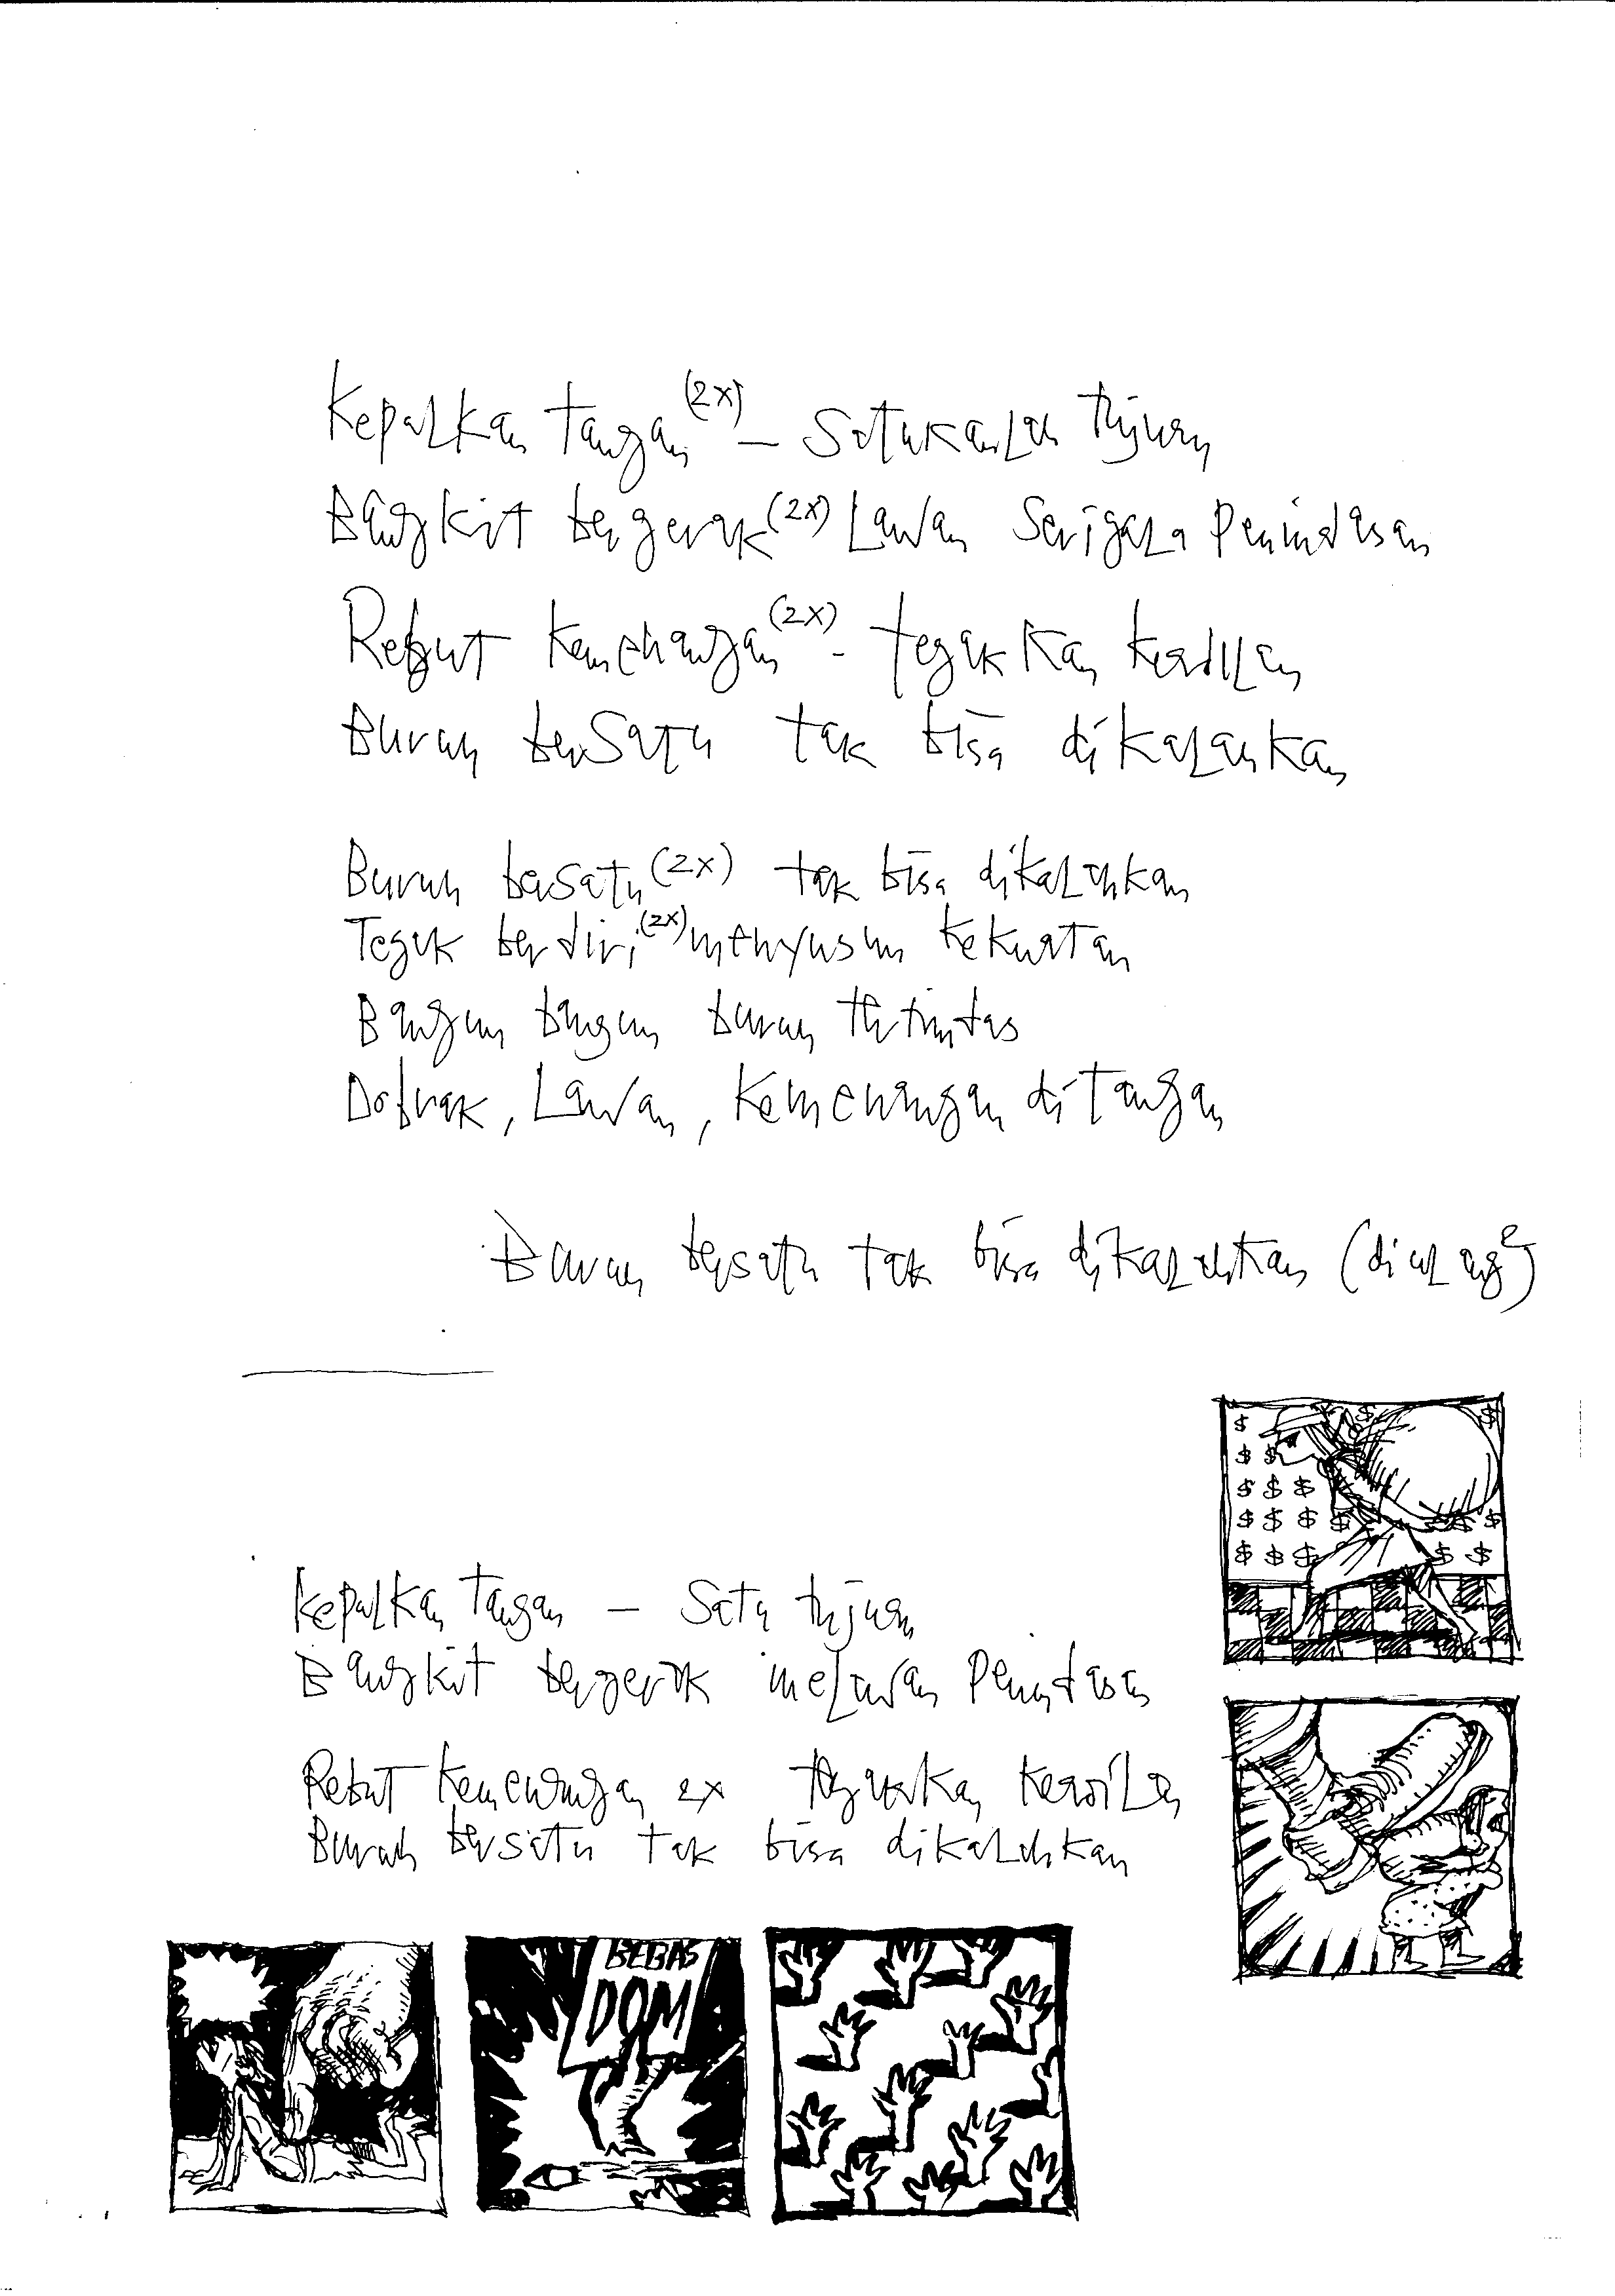 Kepalkan tangan (2x) – Satukanlah tujuan
Bangkit bergerak (2x) Lawan Serigala Penindasan
Rebut kemenangan (2x) - tegakkan keadilan
Buruh bersatu tak bisa dikalahkan
Buruh bersatu (2x) tak bisa dikalahkan
Tegak berdiri (2x) menyusun kekuatan
Bangun bangun buruh tertindas
Dobrak, Lawan, Kemenangan ditangan
Buruh bersatu tak bisa dikalahkan (diulang2)
Kepalkan tangan – Satu tujuan
Bangkit bergerak melawan Penindasan
Rebut kemenangan 2x tegakkan keadilan
Buruh bersatu tak bisa dikalahkan
$ $ $
$ $
$ $ $
$ $ $ $ $ $ $
$ $ $ $ $
BEBAS
DOM